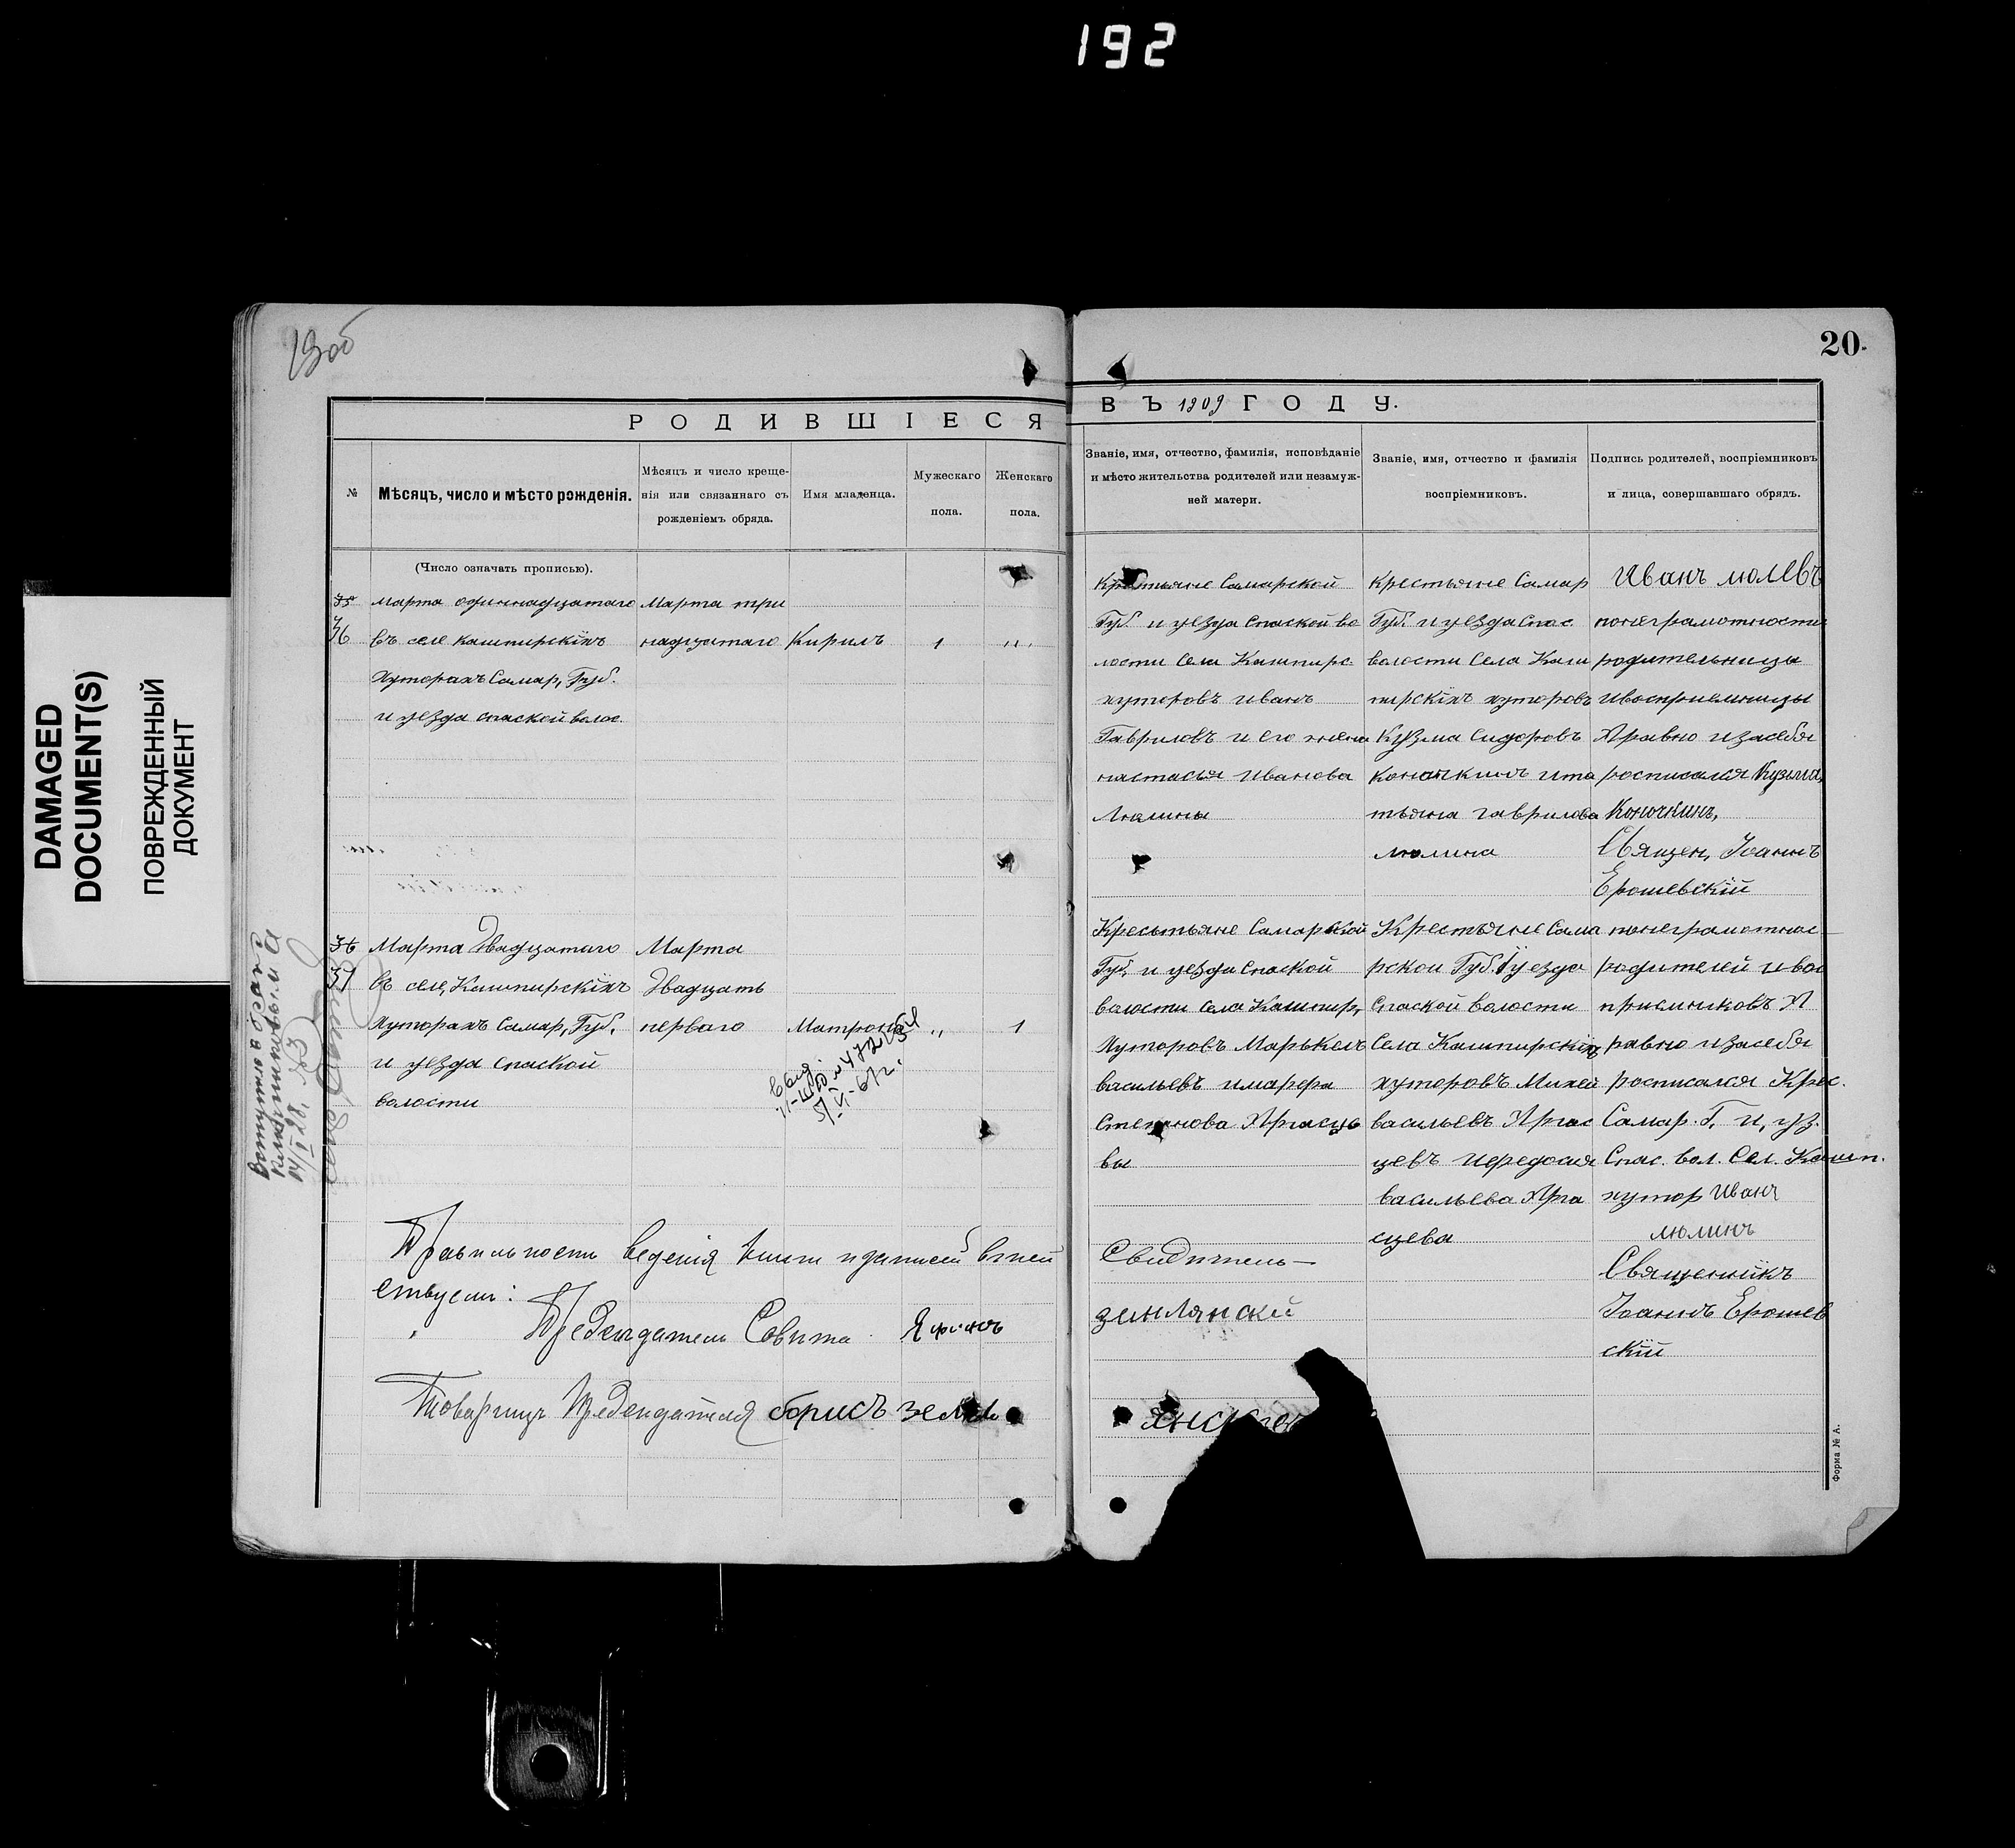 192
DAMAGED
DOCUMENT(S)
ПОВРЕЖДЕННЫЙ
ДОКУМЕНТ
19об
20.
РОДИВШІЕСЯ
ВЪ 1909 ГОДУ.
№
Мѣсяцъ, число и мѣсто рожденія.
Мѣсяцъ и число креще-
нія или связаннаго съ
рожденіемъ обряда.
Имя младенца.
Мужескаго
пола.
Женскаго
пола.
Званіе, имя, отчество, фамилія, исповѣданіе
и мѣсто жительства родителей или незамуж-
ней матери.
Званіе, имя, отчество и фамилія
воспріемниковъ.
Подпись родителей, воспріемниковъ
и лица, совершавшаго обрядъ.
(Число означать прописью).
35
36
марта одиннадцатаго
въ селе кашпирскіхъ
Хуторахъ Самар, Губ.
и уезда спаской волос.
Марта три
надцатаго
Кирилъ
1
"
Крестьяне Самарской
Губ. и уезда Спаской во
лости Села Кашпирс.
хуторовъ иванъ
Гавриловъ и его жена
настасья иванова
Люлины
крестьяне Самар
Губ. и уезда Спас
волости Села Каш
пирскіхъ хуторовъ
Кузма Сидоровъ
конакинъ ита
тьяна гаврилова
люлина
Иванъ
понеграмотности
родительницы
ивосприемницы
Аравно изасебя
росписался Кузьма,
Священ, Іоаннъ
Ерошевскій
36
37
Марта двадцатаго
Въ селе, Кашпирскіхъ
Хуторахъ Самар, Губ,
и уезда спаской
волости
Марта
Двадцать
перваго
Матрона
"
1
Крестьяне Самарской
Губ, и уезда Спаской
волости села Кашпир,
Хуторовъ Марькелъ
васильевъ имарфа
Степанова Аржецо
вы
Крестьяне Сама
рской Губ. і уезда
Спаской волости
Села Кашпирскіхъ
хуторовъ Михей
васильевъ Аржа
цевъ ифедосия
васильева Аржа
цева
понеграмотнос
родителей и вос
приемниковъ А
равно изасебя
росписался Крес.
Самар. Г. и, уз.
Спас. вол. Сел. Кашп.
хутор Иванъ
люлинъ
Священникъ
Іоаннъ Ерошев
скій
Правильность веденія книги и записей въ ней
Свидѣтель-
ствуетъ:
Предсѣдатель Совѣта
Товарищъ Предсѣдателя
Форма № А.